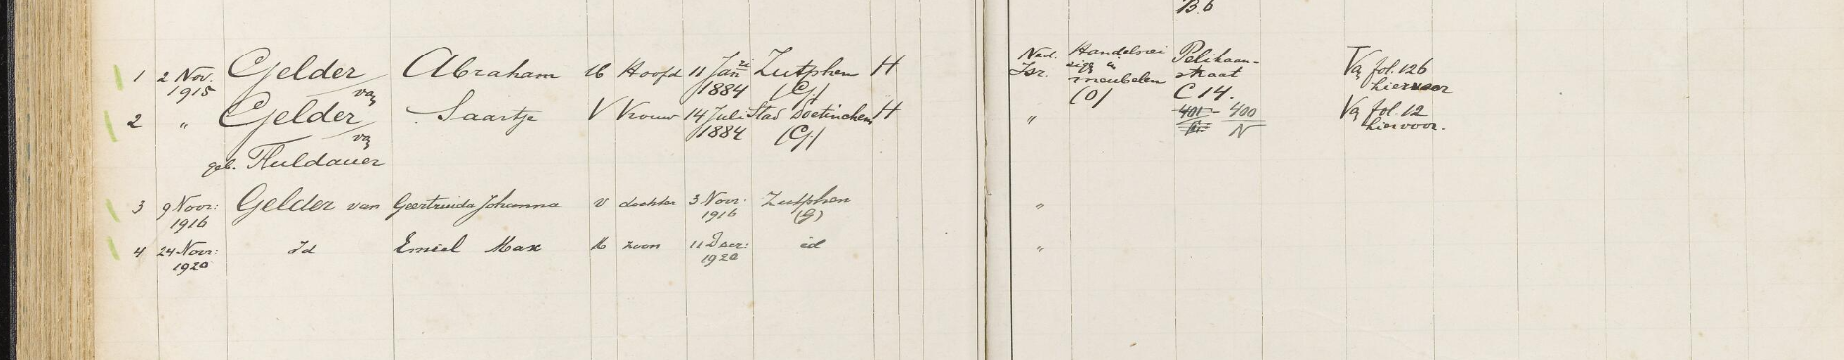 B. 6
1 2 Nov. 1915 Gelder van Abraham M Hoofd 11 Jan 1884 Zutphen (G) H Ned. Isr. Handelsrei meubelen (O) Pelikaan-straat C 14. Va fol. 126 hiervoor
2 " Gelder van Saartje V Vrouw 14 Juli 1884 Stad Doetinchem (G) H " 401 - 400 N Va fol. 12 hiervoor.
geb. Fuldauer
3 9 Novr: 1916 Gelder van Geertruida Johanna v dochter 3 Novr: 1916 Zutphen (G) "
4 24 Novr: 1920 Id Emiel Max M zoon 11 1920 id "